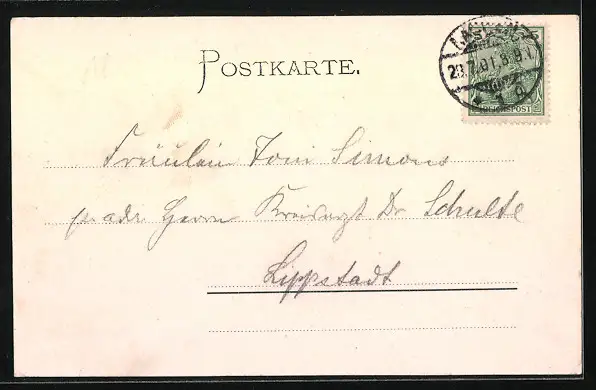 POSTKARTE.
5
REICHSPOST
Fräulein Toni Simons
p. adr. Herrn Kreisarzt Dr. Schulte
Lippstadt